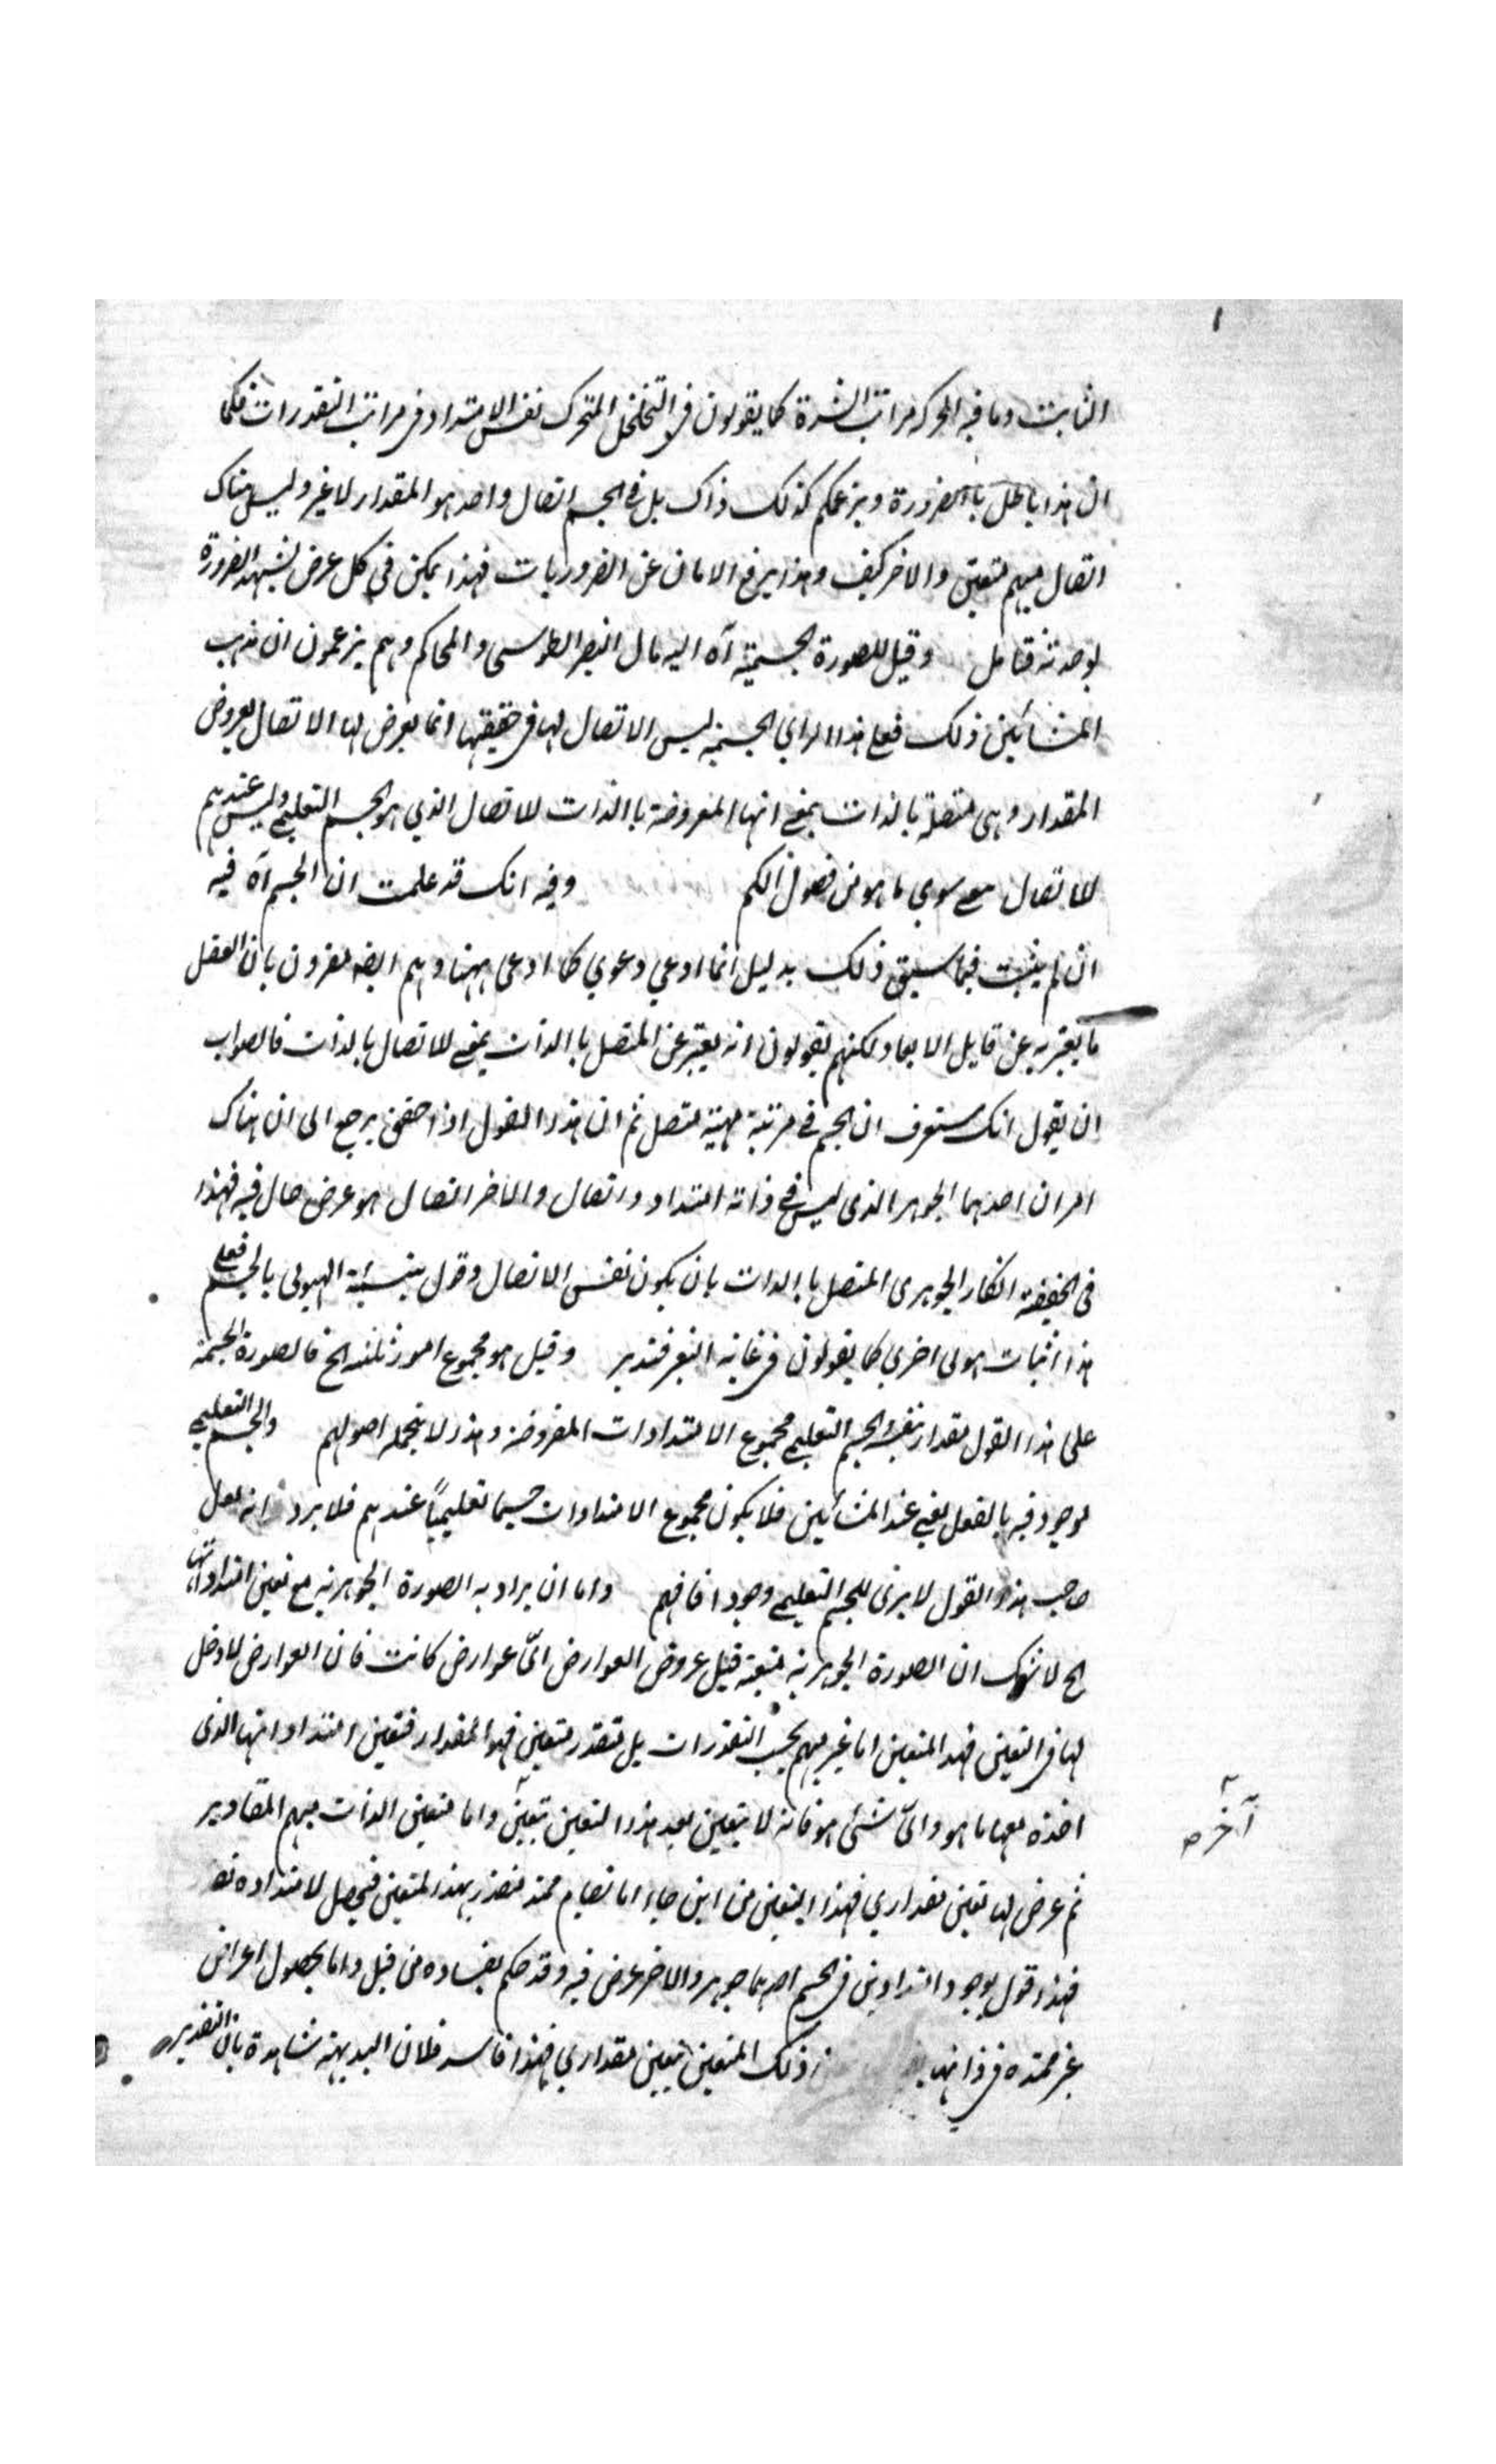 الثابت وما فيه الحركة مراتب الشدة كما يقولون في التخلخل المتحرك نفس الامتداد في مراتب التقدرات فكما
ان هذا باطل باالضرورة وبزعمكم كذلك ذاك بل في الجسم اتصال واحد هو المقدار لا غير وليس هناك
اتصال مبهم متعين والاخر كيف وهذا يرفع الامان عن الضروريات فهذا يمكن في كل عرض يشهد الضرورة
بوحدته فتامل وقيل للصورة الجسمية آه اليه مال النصير الطوسي والمحاكم وهم يزعمون ان مذهب
المشائين ذلك فعلى هذا الراي الجسمية ليس الاتصال لها في حقيقتها انما يعرض لها الاتصال بعروض
المقدار وهي متصلة بالذات بمعنى انها المعروضة باالذات للاتصال الذي هو الجسم التعليمي وليس عندهم
للاتصال معنى سوى ما هو من فصول الكم وفيه انك قد علمت ان الجسم آه فيه
ان لم يثبت فيما سبق ذلك بدليل انما ادعي دعوي كما ادعى ههنا وهم ايضا مقرون بان الفصل
ما يعبر به عن قابل الابعاد لكنهم يقولون انه يعبر عن المتصل باالذات بمعنى للاتصال بالذات فالصواب
ان يقول انك ستعرف ان الجسم في مرتبة مهية متصل ثم ان هذا القول اذا حقق يرجع الى ان هناك
امران احدهما الجوهر الذي ليس في ذاته امتداد واتصال والاخر اتصال هو عرض حال فيه فهذا
في الحقيقة انكار الجوهري المتصل باالذات بان يكون نفس الاتصال وقول بتسمية الهيولى بالجسم فعلى
هذا اثبات هيولى اخرى كما يقولون في غاية فتدبر وقيل هو مجموع امور ثلثة الخ فالصورة الجسمية
على هذا القول مقدار الجسم التعليمي مجموع الامتدادات المفروضة وهذا لا يتحمله اصولهم والجسم التعليمي
موجود فيه بالفعل يعني عند المشائين فلا يكون مجموع الامتدادات جسما تعليمياً عندهم فلا يرد انه لعل
صاحب هذا القول لا يرى للجسم التعليمي وجودا فافهم واما ان يراد به الصورة الجوهرية مع تعين امتداداتها
الخ لا شك ان الصورة الجوهرية متعينة قبل عروض العوارض ايّ عوارض كانت فان العوارض لا دخل
لها في التعين فهذا المتعين اما غير مبهم بحسب التقدرات بل متقدر متعين فهو المقدار فتعين امتدادتها الذي
اخذه معها ما هو وايّ شئ هو فانه لا يتعين بعد هذا التعين بتعين واما متعين الذات مبهم المقادير
ثم عرض لها تعين مقداري فهذا التعين من اين جاء اما بقيام ممتد متقدر بهذا المتعين فيحصل لامتداده
فهذا قول بوجود امتدادين في الجسم احدهما جوهر والاخر عرض فيه وقد حكم بفساده من قبل واما بحصول اعراض
غير ممتدة في ذاتها ذلك المتعين بتعين مقداري فهذا فاسد فلان البديهة شاهدة بان التقدير
آخره